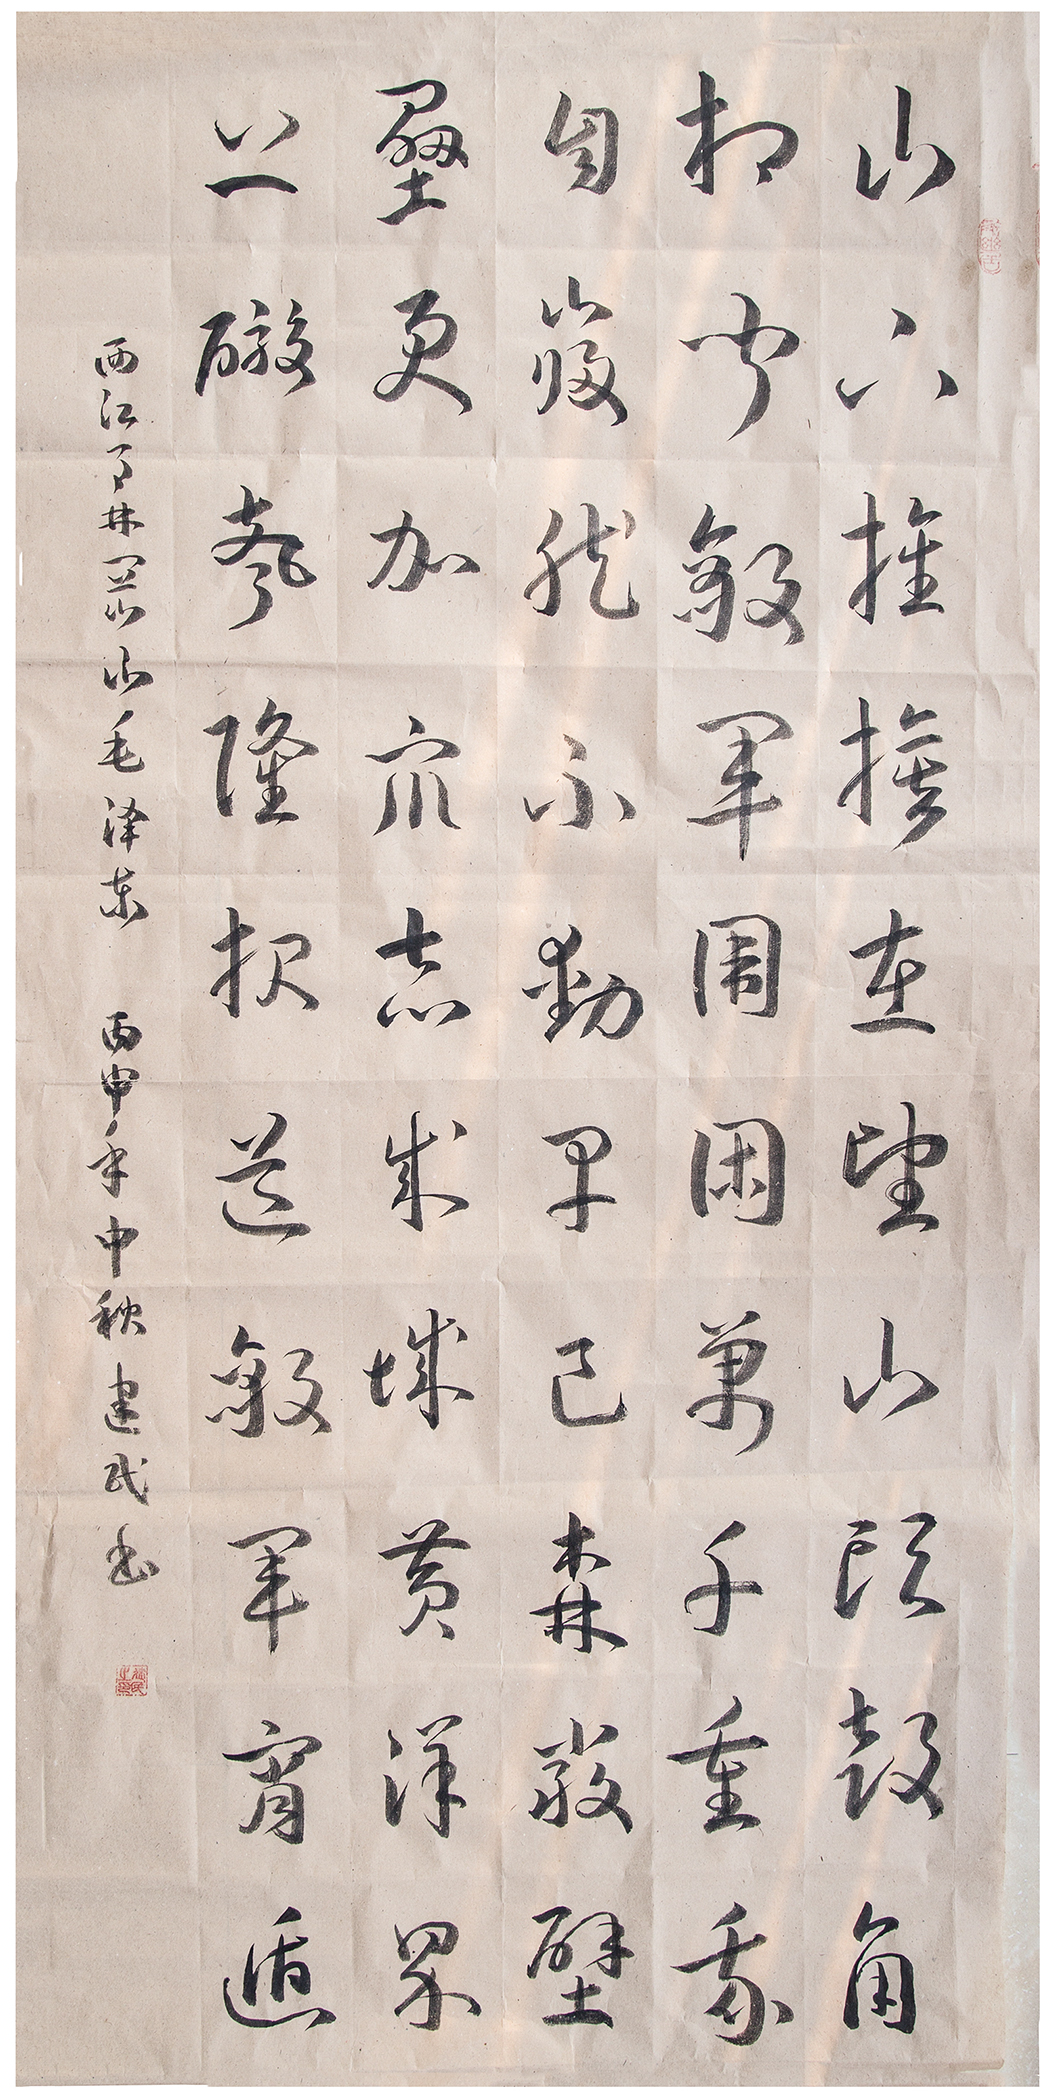 山下旌旗在望山头鼓角
相闻敌军围困万千重我
自岿然不动早已森严壁
垒更加众志成城黄洋界
上礮声隆报道敌军宵遁
西江月井冈山毛泽东 丙申年中秋建民书